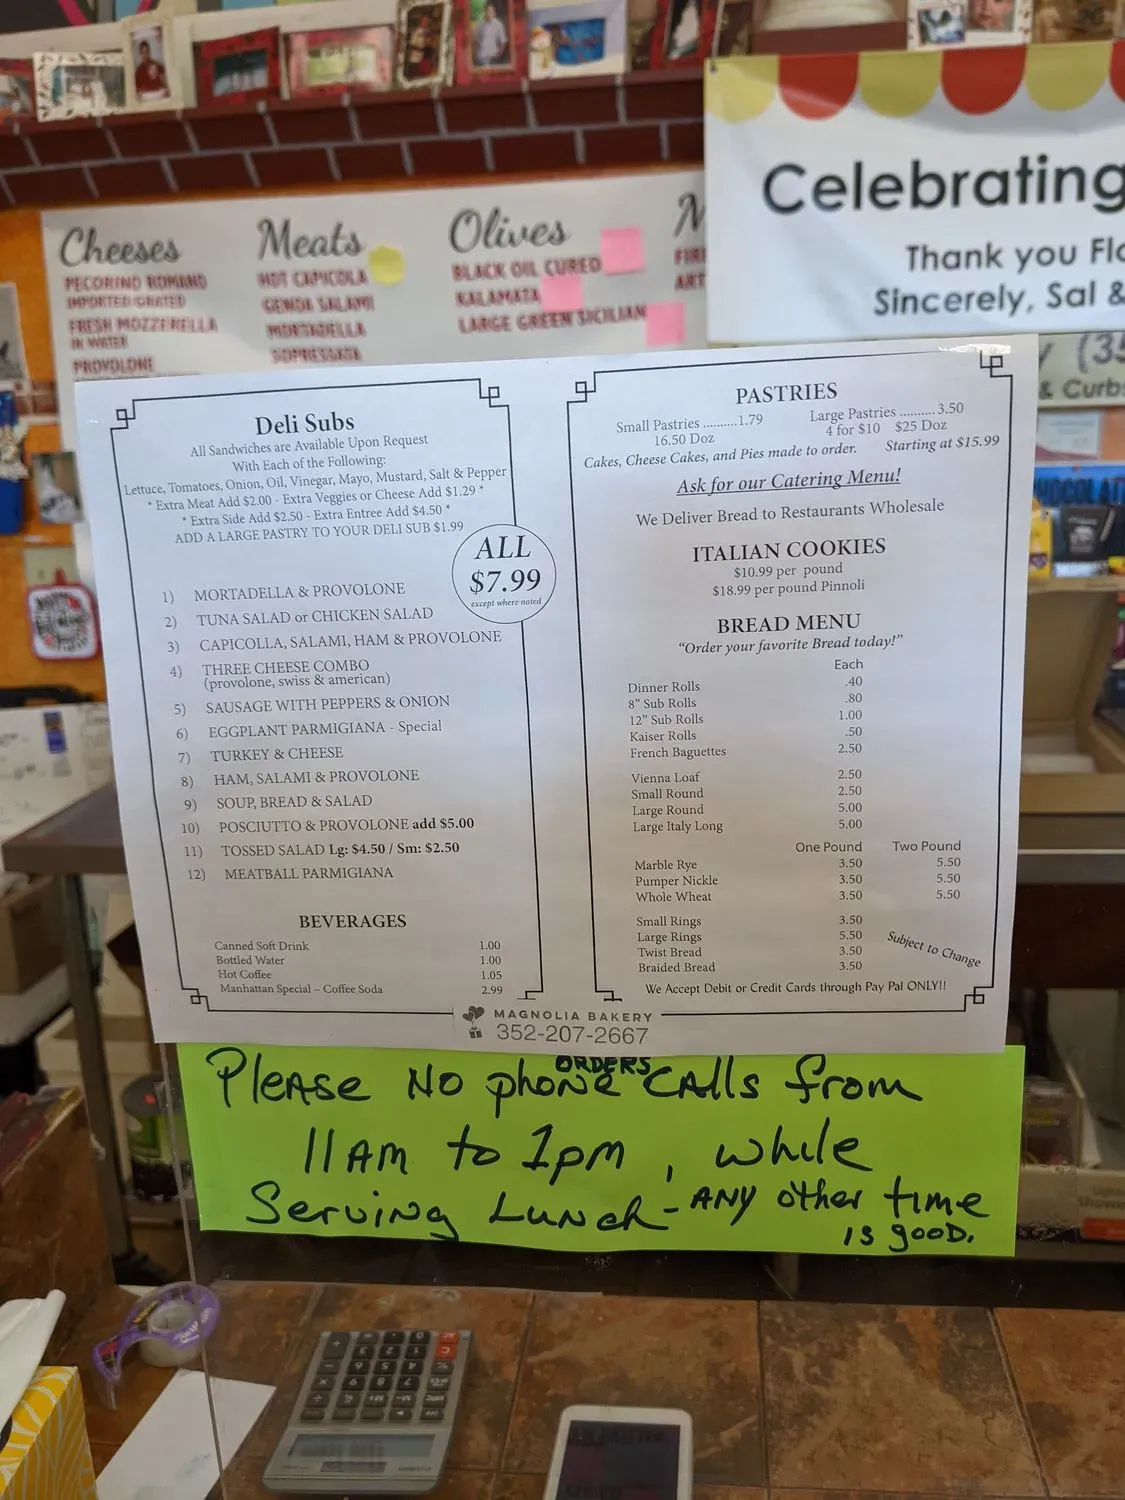 Celebrating
Thank you Flo
Sincerely, Sal &
Cheeses
PECORINO ROMANO
IMPORTED/GRATED
FRESH MOZZERELLA
IN WATER
PROVOLONE
Meats
HOT CAPICOLA
GENOA SALAMI
MORTADELLA
SOPRESSATA
Olives
BLACK OIL CURED
KALAMATA
LARGE GREEN SICILIAN
M
FIR
ART
(35
& Curbs
Deli Subs
All Sandwiches are Available Upon Request
With Each of the Following:
Lettuce, Tomatoes, Onion, Oil, Vinegar, Mayo, Mustard, Salt & Pepper
* Extra Meat Add $2.00 - Extra Veggies or Cheese Add $1.29 *
* Extra Side Add $2.50 - Extra Entree Add $4.50 *
ADD A LARGE PASTRY TO YOUR DELI SUB $1.99
ALL
$7.99
except where noted
1) MORTADELLA & PROVOLONE
2) TUNA SALAD or CHICKEN SALAD
3) CAPICOLLA, SALAMI, HAM & PROVOLONE
4) THREE CHEESE COMBO
(provolone, swiss & american)
5) SAUSAGE WITH PEPPERS & ONION
6) EGGPLANT PARMIGIANA - Special
7) TURKEY & CHEESE
8) HAM, SALAMI & PROVOLONE
9) SOUP, BREAD & SALAD
10) POSCIUTTO & PROVOLONE add $5.00
11) TOSSED SALAD Lg: $4.50 / Sm: $2.50
12) MEATBALL PARMIGIANA
BEVERAGES
Canned Soft Drink 1.00
Bottled Water 1.00
Hot Coffee 1.05
Manhattan Special – Coffee Soda 2.99
PASTRIES
Small Pastries ..........1.79 Large Pastries ..........3.50
16.50 Doz 4 for $10 $25 Doz
Cakes, Cheese Cakes, and Pies made to order. Starting at $15.99
Ask for our Catering Menu!
We Deliver Bread to Restaurants Wholesale
ITALIAN COOKIES
$10.99 per pound
$18.99 per pound Pinnoli
BREAD MENU
"Order your favorite Bread today!"
Each
Dinner Rolls .40
8" Sub Rolls .80
12" Sub Rolls 1.00
Kaiser Rolls .50
French Baguettes 2.50
Vienna Loaf 2.50
Small Round 2.50
Large Round 5.00
Large Italy Long 5.00
One Pound Two Pound
Marble Rye 3.50 5.50
Pumper Nickle 3.50 5.50
Whole Wheat 3.50 5.50
Small Rings 3.50
Large Rings 5.50
Twist Bread 3.50
Braided Bread 3.50
Subject to Change
We Accept Debit or Credit Cards through Pay Pal ONLY!!
MAGNOLIA BAKERY
352-207-2667
ORDERS
Please No phone Calls from
11 AM to 1pm, while
Serving Lunch - ANY other time
is good.